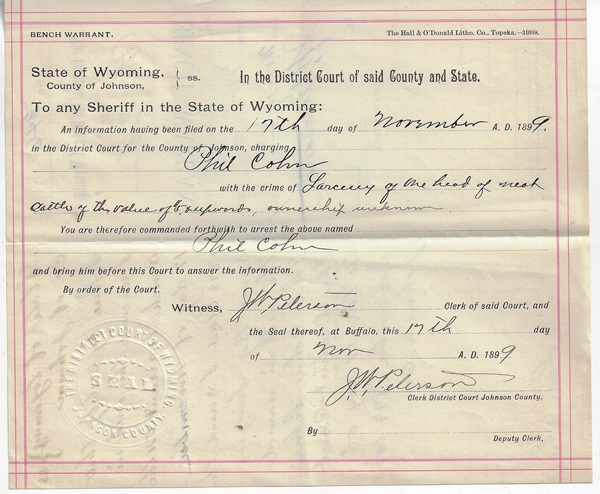 BENCH WARRANT.
The Hall & O'Donald Litho. Co., Topeka.—31608.
State of Wyoming, } ss.
County of Johnson,
In the District Court of said County and State.
To any Sheriff in the State of Wyoming:
An information having been filed on the 17th day of November A. D. 1899.
in the District Court for the County of Johnson, charging
Phil Cohn
with the crime of Larceny of one head of neat
cattle of the value of $5 upwards, ownership unknown.
You are therefore commanded forthwith to arrest the above named
Phil Cohn
and bring him before this Court to answer the information.
By order of the Court.
Witness, J.W. Peterson Clerk of said Court, and
the Seal thereof, at Buffalo, this 17th day
of Nov A. D. 1899
J.W. Peterson
Clerk District Court Johnson County.
By
Deputy Clerk.
DISTRICT COURT OF WYOMING
SEAL
JOHNSON COUNTY.